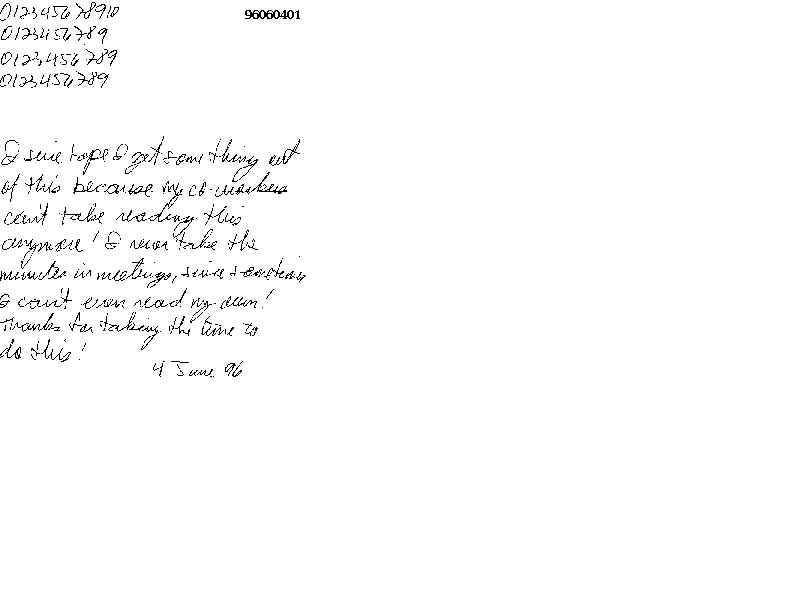 012345678910
96060401
0123456789
0123456789
0123456789
I sure hope I get something out
of this because my co-workers
can't take reading this
anymore! I never take the
minutes in meetings, since sometimes
I can't even read my own!
Thanks for taking the time to
do this!
4 June 96